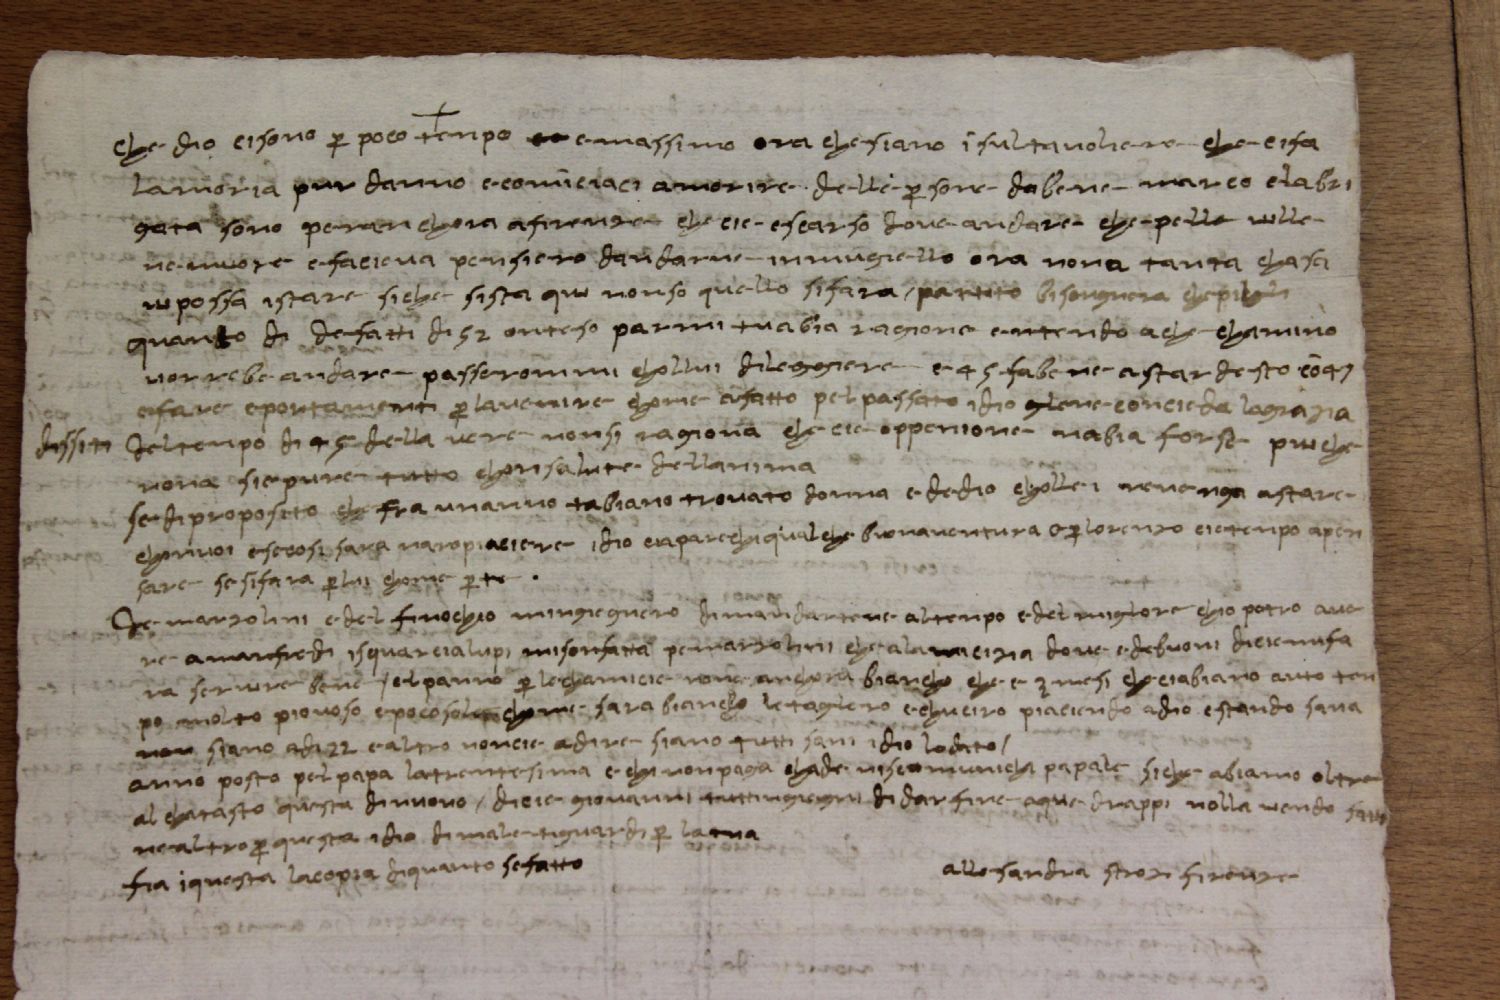 che dio ci sono p poco tempo e massimo ora che siano i sul tavoliere che ci fa
la moria pur danno e comīciaci a morire delle p sone da bene marco e la bri
gata sono peranchora a firenze che cie escarso dove andare che pelle ville
ne muore e facieva pensiero dandarne in mugiello ora nona tanta chasa
vi possa istare siche si sta qui non so quello si fara / partito bisongnera che pigli
quanto di de fatti di 52 o nteso parmi tu abia ragione e ntendo a che chamino
vorrebe andare passeronmi chollui di leggiere e 45 fa bene a star desto cō 47
e fare e portamenti p lavenire chome a fatto pel passato idio gliene concieda la grazia
dissiti del tenpo di 45 della vere non si ragiona che cie oppenione nabia forse piu che
nona sie pure tutto chon salute dellanima
se di proposito che fra un anno tabiano trovato donna e de dio chollei ne venga a stare
chon noi e se cosi sara naro piaciere idio ci aparechi qualche buona ventura e p lorenzo cie tenpo a pen
sare se si fara p lui chome p te .
De marzolini e del finochio mingiegnero di mandartene al tenpo e del migliore chio potro ave
re a manfredi isquarcialupi mi son fatta pe marzolini che a la dove e de buoni dicie mi fa
ra servire bene / el panno p le chamicie none anchora biancho che e 3 mesi che ci abiano auto ten
po molto piovoso e poco sole chome sara biancho le tagliero e chuciro piaciendo a dio e stando sana
non siano adi 22 e altro non cie a dire siano tutti sani idio lodato /
anno posto pel papa la trentesima e chi non paga chade niscomunicha papale siche abiamo oltre
al chatasto questa di nuovo / dicie giovanni tu tingiegni di dar fine a que drappi nolla vendo fatti
ne altro p questa idio di male ti guardi p la tua
fia i questa la copia di quanto se fatto allesandra strozi firenze